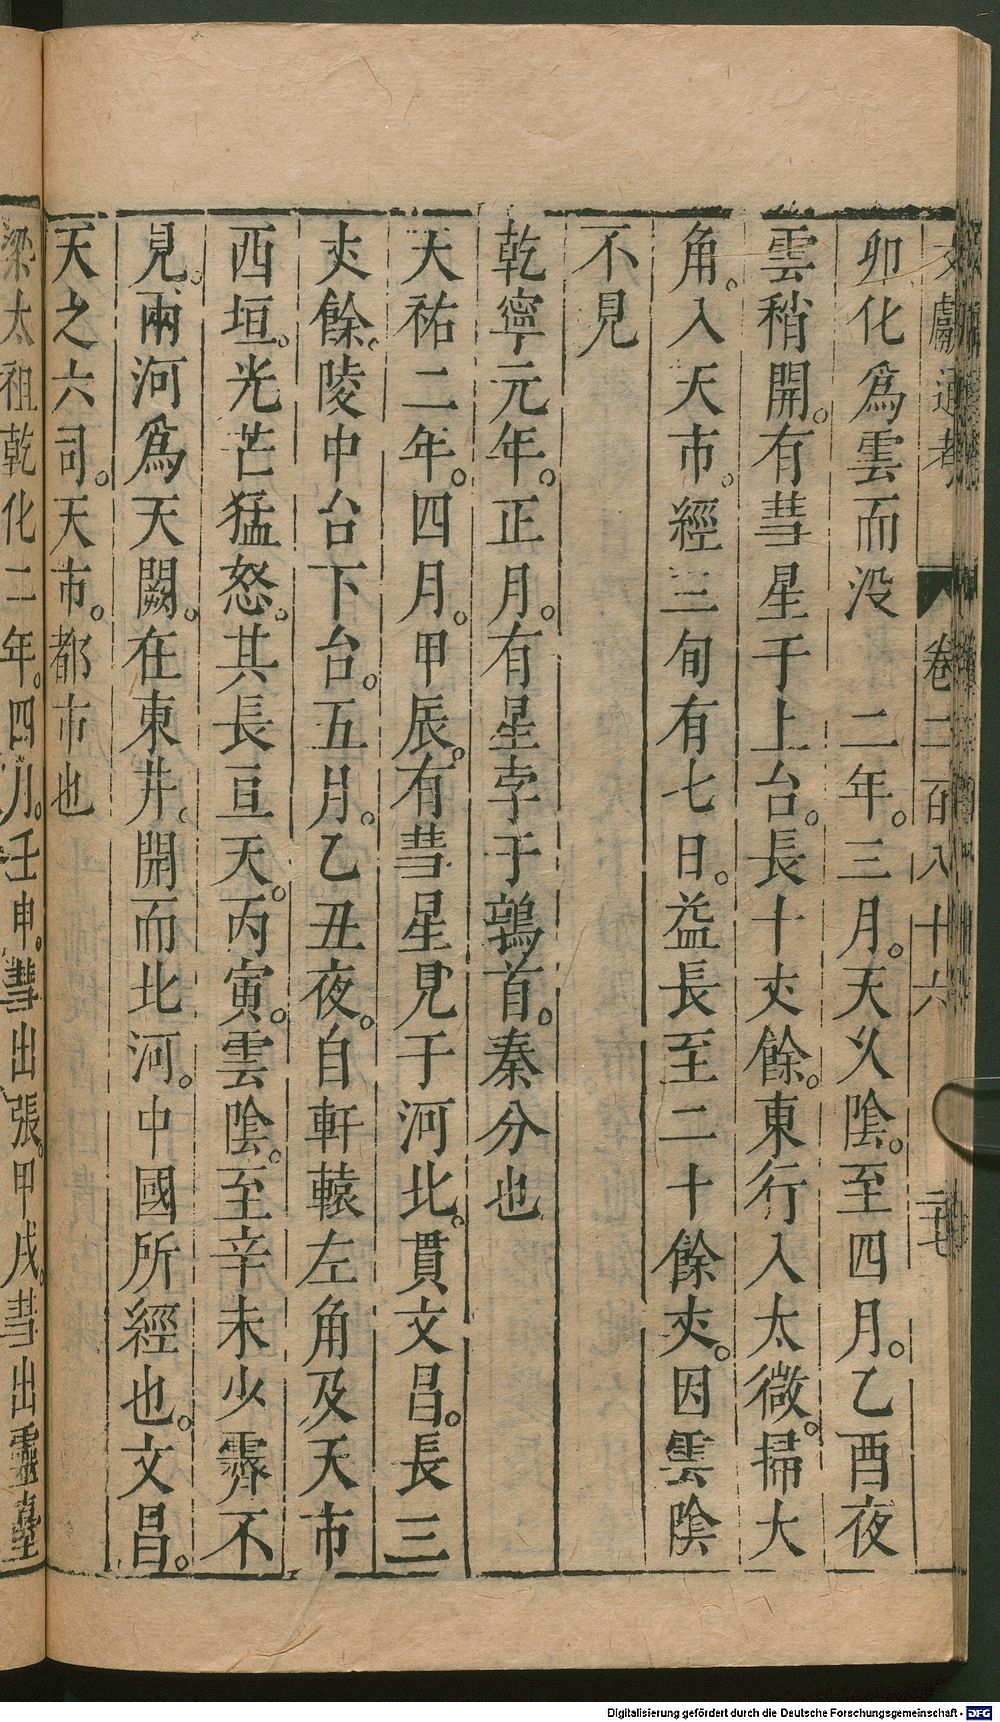 文獻通考 卷二百八十六 二七
卯化爲雲而没 二年。三月。天久陰。至四月。乙酉夜
雲稍開。有彗星于上台。長十丈餘。東行入太微。掃大
角。入天市。經三旬有七日。益長至二十餘丈。因雲陰
不見
乾寧元年。正月。有星孛于鶉首。秦分也
天祐二年。四月。甲辰。有彗星見于河北。貫文昌。長三
丈餘。陵中台下台。五月。乙丑夜。自軒轅左角及天市
西垣。光芒猛怒。其長亘天。丙寅。雲陰。至辛未少霽不
見。兩河爲天闕。在東井。開而北河。中國所經也。文昌。
天之六司。天市。都市也
梁太祖乾化二年。四月。壬申。彗出張。甲戌。彗出靈臺
Digitalisierung gefördert durch die Deutsche Forschungsgemeinschaft - DFG